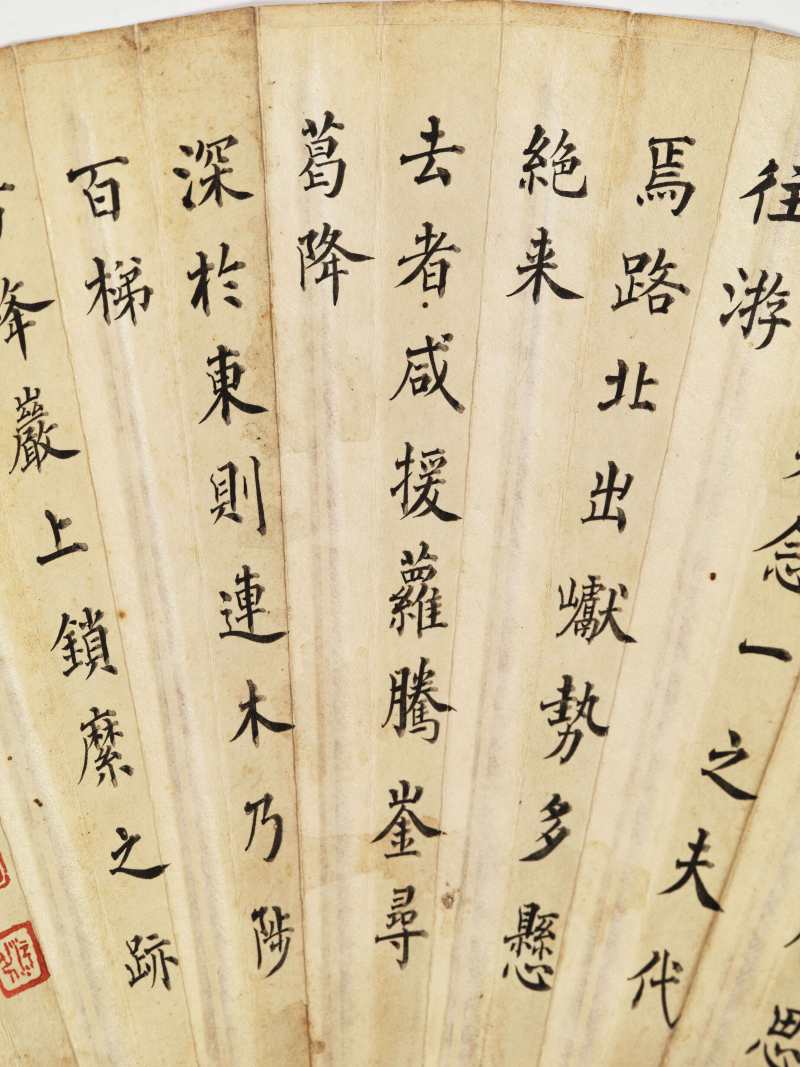 思
念一之夫代
往游
焉路北出巘勢多懸
絶来
去者咸援蘿騰崟尋
葛降
深於東則連木乃陟
百梯
巖上鎖縻之跡